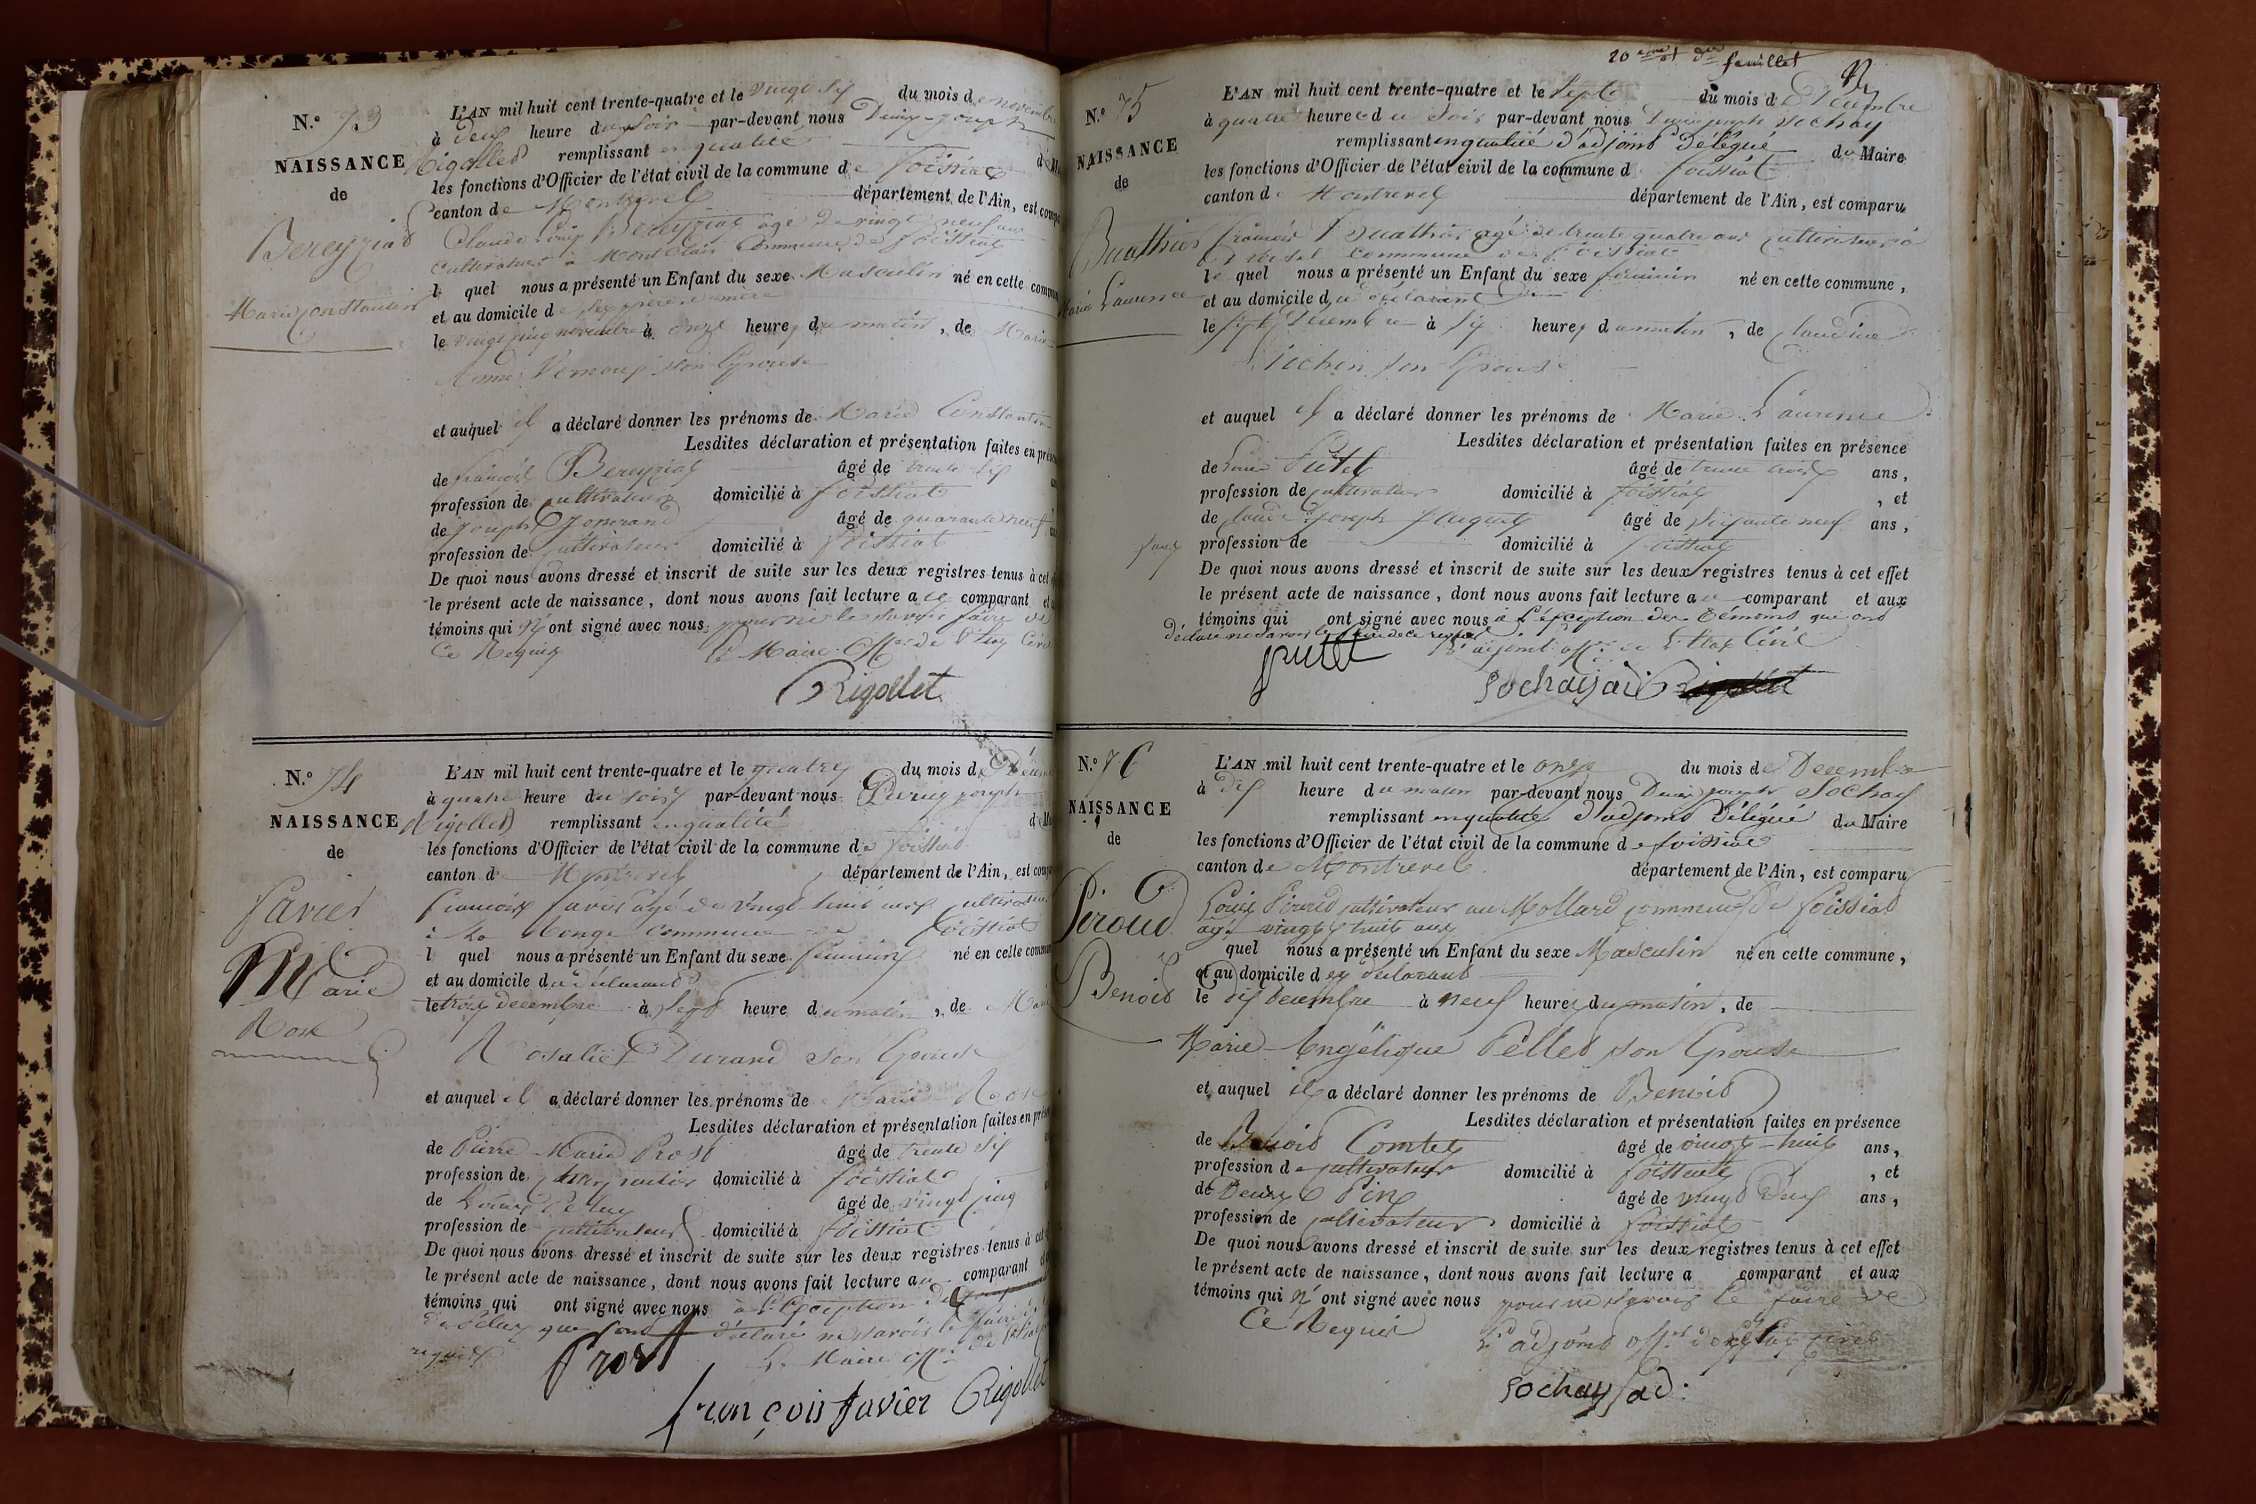 N.o 73
NAISSANCE
de
Bereyziat
Marie Constantin
L'AN mil huit cent trente-quatre et le vingt six du mois de novembre
à deux heure du soir par-devant nous Denis joseph
Rigollet remplissant en qualité
les fonctions d'Officier de l'état civil de la commune de foissiat
canton de Montrevel département de l'Ain, est comparu
Claude Louis Bereyziat agé de vingt neuf ans
cultivateur à Commune de foissiat
l quel nous a présenté un Enfant du sexe Masculin né en cette commune
et au domicile de ses père et mère
le vingt cinq novembre à onze heures du matin, de Marie
son Epouse
et auquel il a déclaré donner les prénoms de Marie Constantin
Lesdites déclaration et présentation faites en présence
de françois Bereyziat âgé de trente six
profession de cultivateur domicilié à foissiat
de Joseph âgé de quarante neuf
profession de cultivateur domicilié à foissiat
De quoi nous avons dressé et inscrit de suite sur les deux registres tenus à cet
le présent acte de naissance, dont nous avons fait lecture a ce comparant et
témoins qui n'ont signé avec nous pour ne le savoir faire de
Ce Requis Le Maire Off. de l'Etat Civil
Rigollet
N.o 74
NAISSANCE
de
favier
Marie
Rose
L'AN mil huit cent trente-quatre et le quatre du mois de Décembre
à quatre heure du soir par-devant nous Denis joseph
Rigollet remplissant en qualité
les fonctions d'Officier de l'état civil de la commune de foissiat
canton de Montrevel département de l'Ain, est comparu
françois favier agé de vingt huit ans cultivateur
à la Monge Commune de foissiat
l quel nous a présenté un Enfant du sexe féminin né en cette commune
et au domicile du déclarant
le trois décembre à sept heure du matin, de Marie
Rosalie Durand son Epouse
et auquel il a déclaré donner les prénoms de Marie Rose
Lesdites déclaration et présentation faites en présence
de Pierre Marie Prost âgé de trente six
profession de domicilié à foissiat
de âgé de vingt cinq
profession de cultivateur domicilié à foissiat
De quoi nous avons dressé et inscrit de suite sur les deux registres tenus à cet
le présent acte de naissance, dont nous avons fait lecture au comparant
témoins qui ont signé avec nous à l'exception de
déclaré ne savoir le faire de ce
requis Le Maire off. de l'état
Prost
françois favier Rigollet
20eme et der feuillet
N.o 75
NAISSANCE
de
Buathier
Marie Laurence
L'AN mil huit cent trente-quatre et le sept du mois de Décembre
à quatre heure du soir par-devant nous Denis joseph Sochay
remplissant en qualité d'adjoint délégué du Maire
les fonctions d'Officier de l'état civil de la commune d foissiat
canton de Montrevel département de l'Ain, est comparu
françois Buathier agé de trente quatre ans cultivateur à
commune de foissiat
le quel nous a présenté un Enfant du sexe féminin né en cette commune,
et au domicile du déclarant
le sept Décembre à six heures du matin, de Claudine
son Epouse
et auquel il a déclaré donner les prénoms de Marie Laurence
Lesdites déclaration et présentation faites en présence
de Louis Putet âgé de trente trois ans,
profession de cultivateur domicilié à foissiat, et
de Claude Joseph âgé de soixante neuf ans,
profession de domicilié à foissiat
De quoi nous avons dressé et inscrit de suite sur les deux registres tenus à cet effet
le présent acte de naissance, dont nous avons fait lecture au comparant et aux
témoins qui ont signé avec nous à l'exception des témoins qui ont
déclaré ne savoir le faire de ce requis
L'adjoint off. de l'Etat Civil
putet
Sochay adj
N.o 76
NAISSANCE
de
Piroud
Benoit
L'AN mil huit cent trente-quatre et le onze du mois de Decembre
à dix heure du matin par-devant nous Denis joseph Sochay
remplissant en qualité d'adjoint délégué du Maire
les fonctions d'Officier de l'état civil de la commune de foissiat
canton de Montrevel département de l'Ain, est comparu
Louis Piroud cultivateur au Mollard commune de foissiat
agé vingt huit ans
quel nous a présenté un Enfant du sexe Masculin né en cette commune,
et au domicile du déclarant
le dix Decembre à neuf heures du matin, de
Marie Angélique Pellet son Epouse
et auquel il a déclaré donner les prénoms de Benoit
Lesdites déclaration et présentation faites en présence
de Benoit Comtet âgé de vingt-huit ans,
profession de cultivateur domicilié à foissiat, et
de Denis Pin âgé de vingt deux ans,
profession de cultivateur domicilié à foissiat
De quoi nous avons dressé et inscrit de suite sur les deux registres tenus à cet effet
le présent acte de naissance, dont nous avons fait lecture a comparant et aux
témoins qui n'ont signé avec nous pour ne savoir le faire de
Ce Requis L'adjoint off. de l'état civil
Sochay ad: